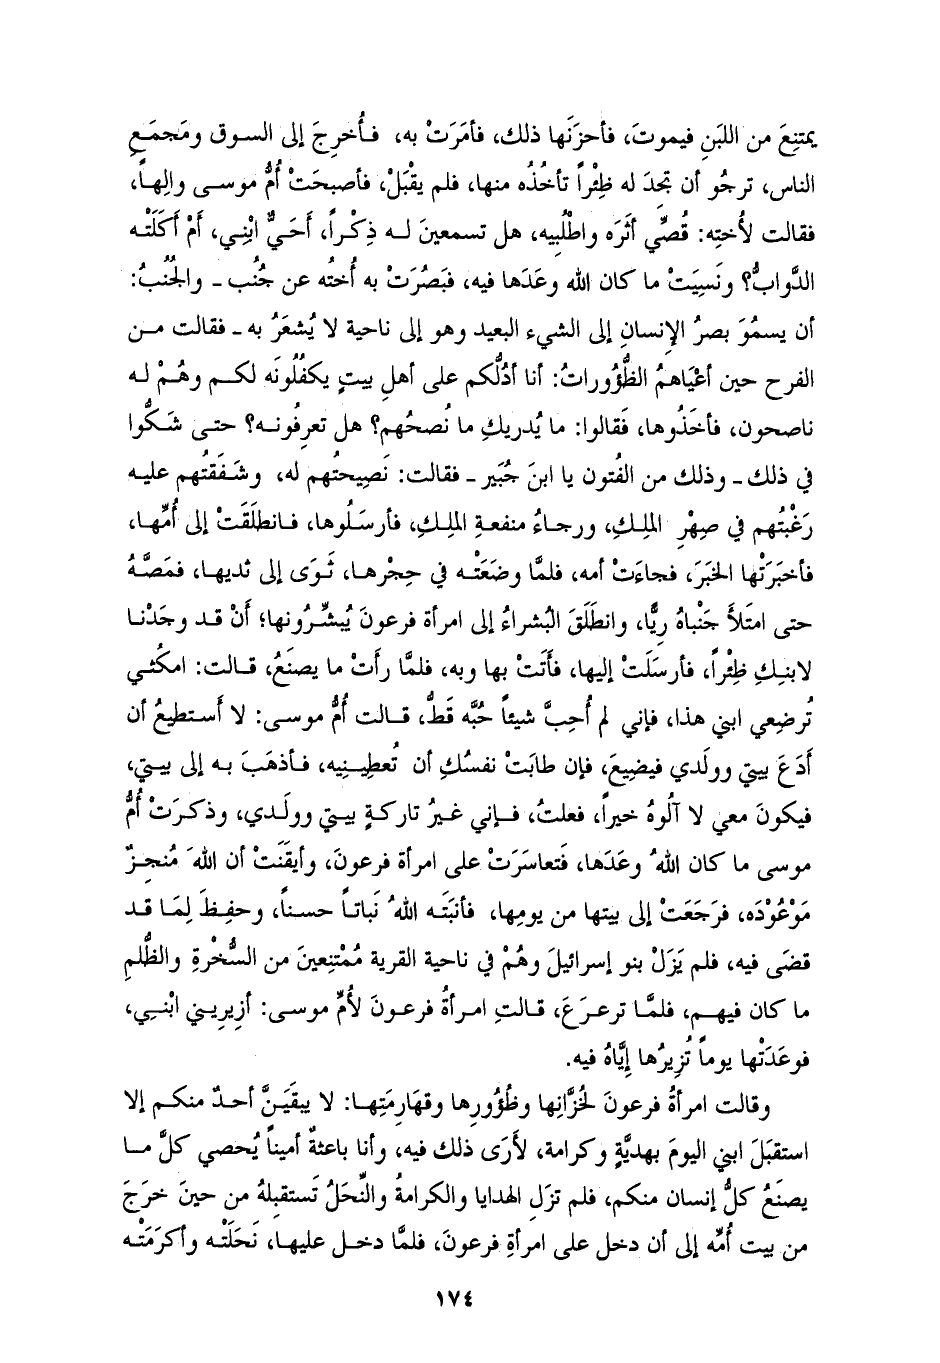 يمتنِعَ من اللبَنِ فيموتَ، فأحزنَها ذلك، فأمَرَتْ به، فأُخرِجَ إلى السوق ومَجمَعِ
الناس، ترجُو أن تجِدَ له ظِئْراً تأخُذُه منها، فلم يقبَلْ، فأصبحَتْ أُمُّ موسى والِهاً،
فقالت لأُختِه: قُصِّي أثَرَه واطْلُبِيه، هل تسمعينَ لـه ذِكْراً، أَحَيٌّ ابْنِي، أَمْ أَكَلَتْـه
الدَّوابُّ؟ ونَسِيَتْ ما كان الله وعَدَها فيه، فبَصُرَتْ به أُختُه عن جُنُب ـ والجُنُبُ:
أن يسمُوَ بصرُ الإِنسانِ إلى الشيء البعيد وهو إلى ناحية لا يُشعَرُ به ـ فقالت مـن
الفرح حين أعْيَاهمُ الظُّؤوراتُ: أنا أدُلُّكم على أهلِ بيتٍ يكفُلُونَه لكـم وهُـمْ لـه
ناصحون، فأخَذُوها، فَقالوا: ما يُدريكِ ما نُصحُهم؟ هل تعرِفُونـه؟ حتـى شَـكُّوا
في ذلك ـ وذلك من الفُتون يا ابنَ جُبَير ـ فقالت: نَصِيحتُهم له، وشَفَقتُهم عليـه
رَغْبتُهم في صِهْرِ الملِـكِ، ورجـاءُ منفعـةِ الملِـكِ، فأرسَـلُوها، فـانطلَقَتْ إلى أُمِّهـا،
فأخبَرَتْها الخبَرَ، فجاءَتْ أمه، فلمَّا وضَعَتْـه في حِجْرهـا، ثَـوَى إلى ثديهـا، فمَصَّـهُ
حتى امتَلأَ جَنْباهُ رِيًّا، وانطَلَقَ البُشراءُ إلى امرأة فرعونَ يُبشِّرُونها؛ أنْ قـد وجَدْنـا
لابنِـكِ ظِئْراً، فأرسَلَتْ إليها، فَأَتَتْ بها وبه، فلمَّا رأَتْ ما يصنَعُ، قـالت: امكُثـي
تُرضِعي ابني هذا، فإني لم أُحِبَّ شيئاً حُبَّه قَطُّ، قـالت أُمُّ موسى: لا أَستطيعُ أن
أَدَعَ بيتي وولَدي فيضِيعَ، فإن طابَتْ نفسُكِ أن تُعطِيـنِيه، فـأذهَبَ بـه إلى بيـتي،
فيكونَ معي لا آلُوهُ خيراً، فعلتُ، فـإني غـيرُ تاركـةٍ بيـتي وولَـدي، وذكـرَتْ أُمُّ
موسى ما كان اللهُ وعَدَها، فَتعاسَرَتْ على امرأة فرعونَ، وأَيقَنَتْ أن اللهَ مُنجِـزٌ
مَوْعُوْدَه، فرَجَعَتْ إلى بيتها من يومِها، فأنبَتَـه اللهُ نَباتـاً حسنـاً، وحفِـظَ لِمَـا قـد
قضَى فيه، فلم يَزَلْ بنو إسرائيلَ وهُمْ في ناحية القرية مُمْتنِعينَ من السُّخْرةِ والظُّلمِ
ما كان فيهـم، فلمَّـا ترعـرَعَ، قـالتِ امـرأةُ فرعـونَ لأُمِّ موسـى: أزِيرِيـني ابْنـي،
فوعَدَتْها يوماً تُزِيرُها إيَّاهُ فيه.
وقالت امرأةُ فرعونَ لخُزَّانِها وظُؤُورِها وقهَارِمَتِهـا: لا يبقَيَـنَّ أحـدٌ منكـم إلا
استقبَلَ ابني اليومَ بهديَّةٍ وكرامة، لأرَى ذلك فيه، وأنا باعثةٌ أميناً يُحصي كلَّ مـا
يصنَعُ كلُّ إنسان منكم، فلم تزَلِ الهدايا والكرامةُ والنِّحَلُ تَستقبِلهُ من حينَ خرَجَ
من بيت أُمِّه إلى أن دخل على امرأةِ فرعونَ، فلمَّا دخـل عليهـا، نَحَلَتْـه وأكرَمَتْـه
١٧٤